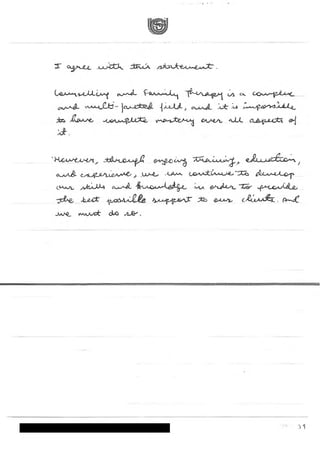 I agree with this statement.
Counselling and Family Therapy is a complex
and multi-faceted field, and it is impossible
to have complete mastery over all aspects of
it.
However, through ongoing training, education,
and experience, we can continue to develop
our skills and knowledge in order to provide
the best possible support to our clients. And
we must do so.
1